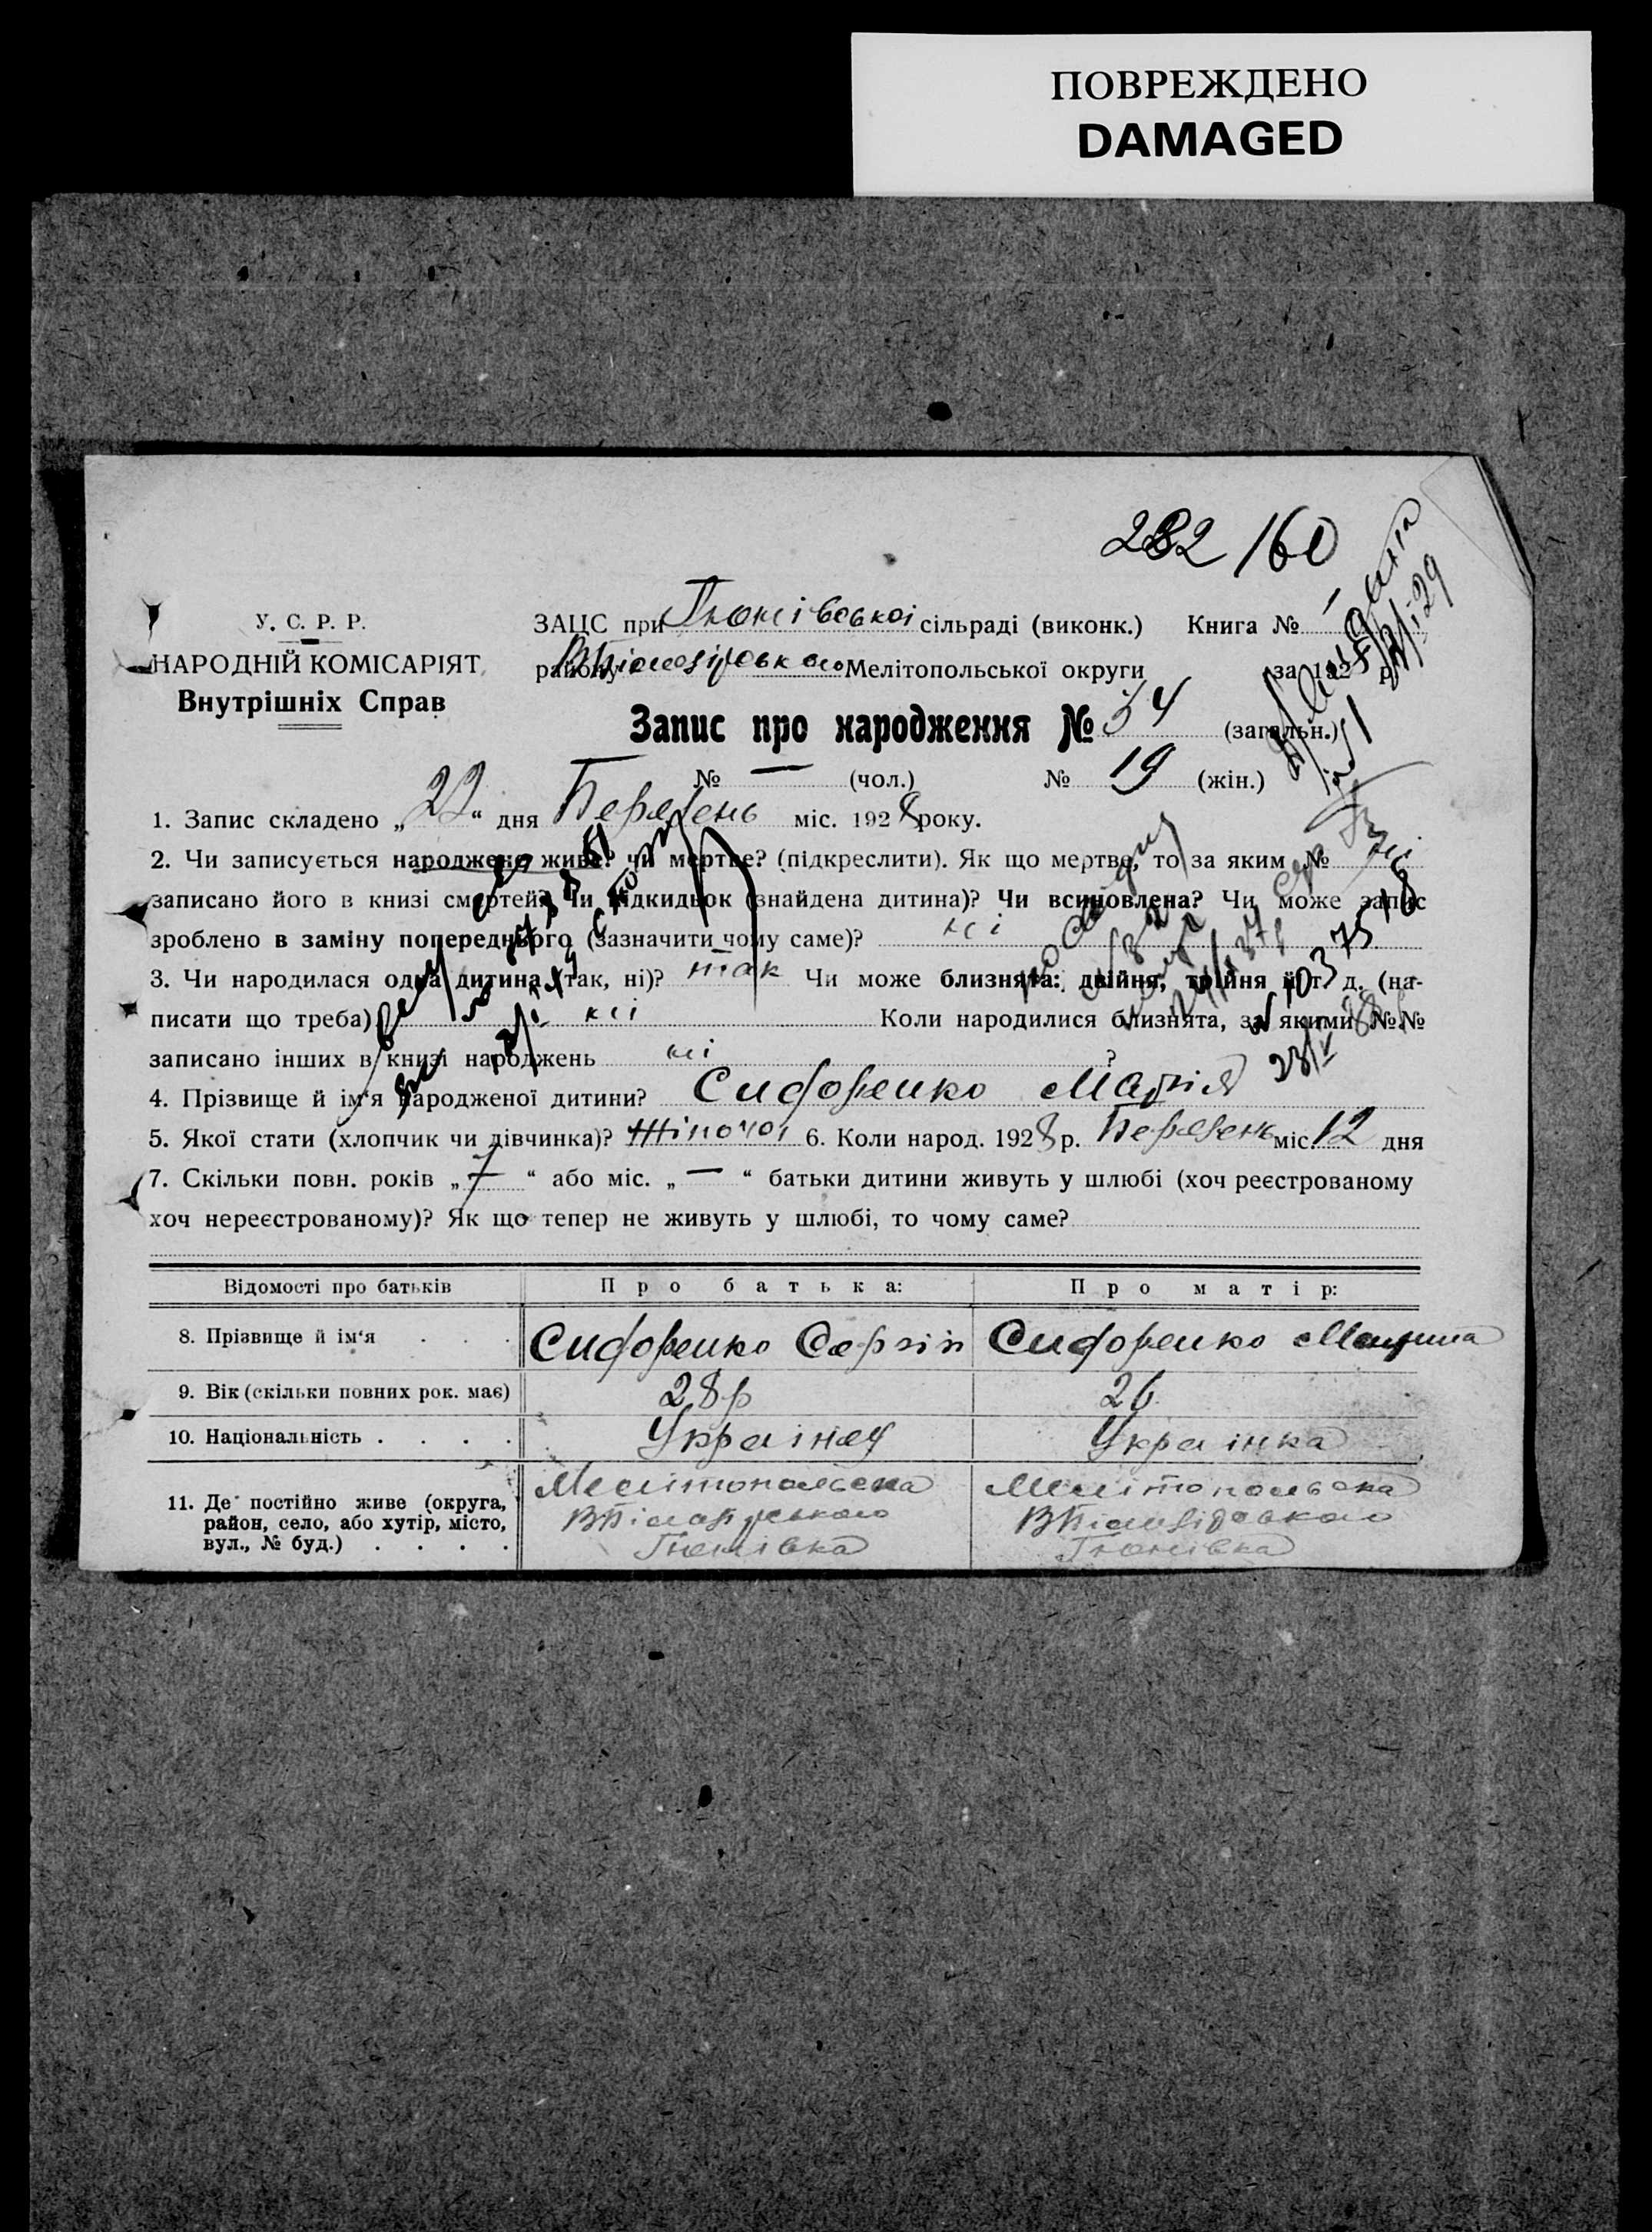 ПОВРЕЖДЕНО
DAMAGED
282 / 60
У. С. Р. Р.
НАРОДНІЙ КОМІСАРІЯТ
Внутрішніх Справ
ЗАЦС при сільраді (виконк.) Книга № 1
району Мелітопольської округи за 192 р.
Запис про народження № 54 (загальн.)
№ — (чол.) № 19 (жін.)
1. Запис складено „ 22 “ дня Березень міс. 1928 року.
2. Чи записується народжене живе? чи мертве? (підкреслити). Як що мертве, то за яким № ні
записано його в книзі смертей? Чи підкидьок (знайдена дитина)? Чи всиновлена? Чи може запис
зроблено в заміну попереднього (зазначити чому саме)? ні
3. Чи народилася одна дитина (так, ні)? так Чи може близнята: двійня, трійня й т. д. (на-
писати що треба) ні Коли народилися близнята, за якими №№
записано інших в книзі народжень ні ?
4. Прізвище й ім‘я народженої дитини? Сидоренко Марія
5. Якої стати (хлопчик чи дівчинка)? Жіночої 6. Коли народ. 1928 р. Березень міс. 12 дня
7. Скільки повн. років „ 7 “ або міс. „ — “ батьки дитини живуть у шлюбі (хоч реєстрованому
хоч нереєстрованому)? Як що тепер не живуть у шлюбі, то чому саме?
Відомості про батьків Про батька: Про матір:
8. Прізвище й ім‘я . . . Сидоренко Сергій Сидоренко
9. Вік (скільки повних рок. має) 28 р 26
10. Національність . . . . Українец Українка
11. Де постійно живе (округа, Мелітопольська Мелітопольська
район, село, або хутір, місто,
вул., № буд.) . . . .